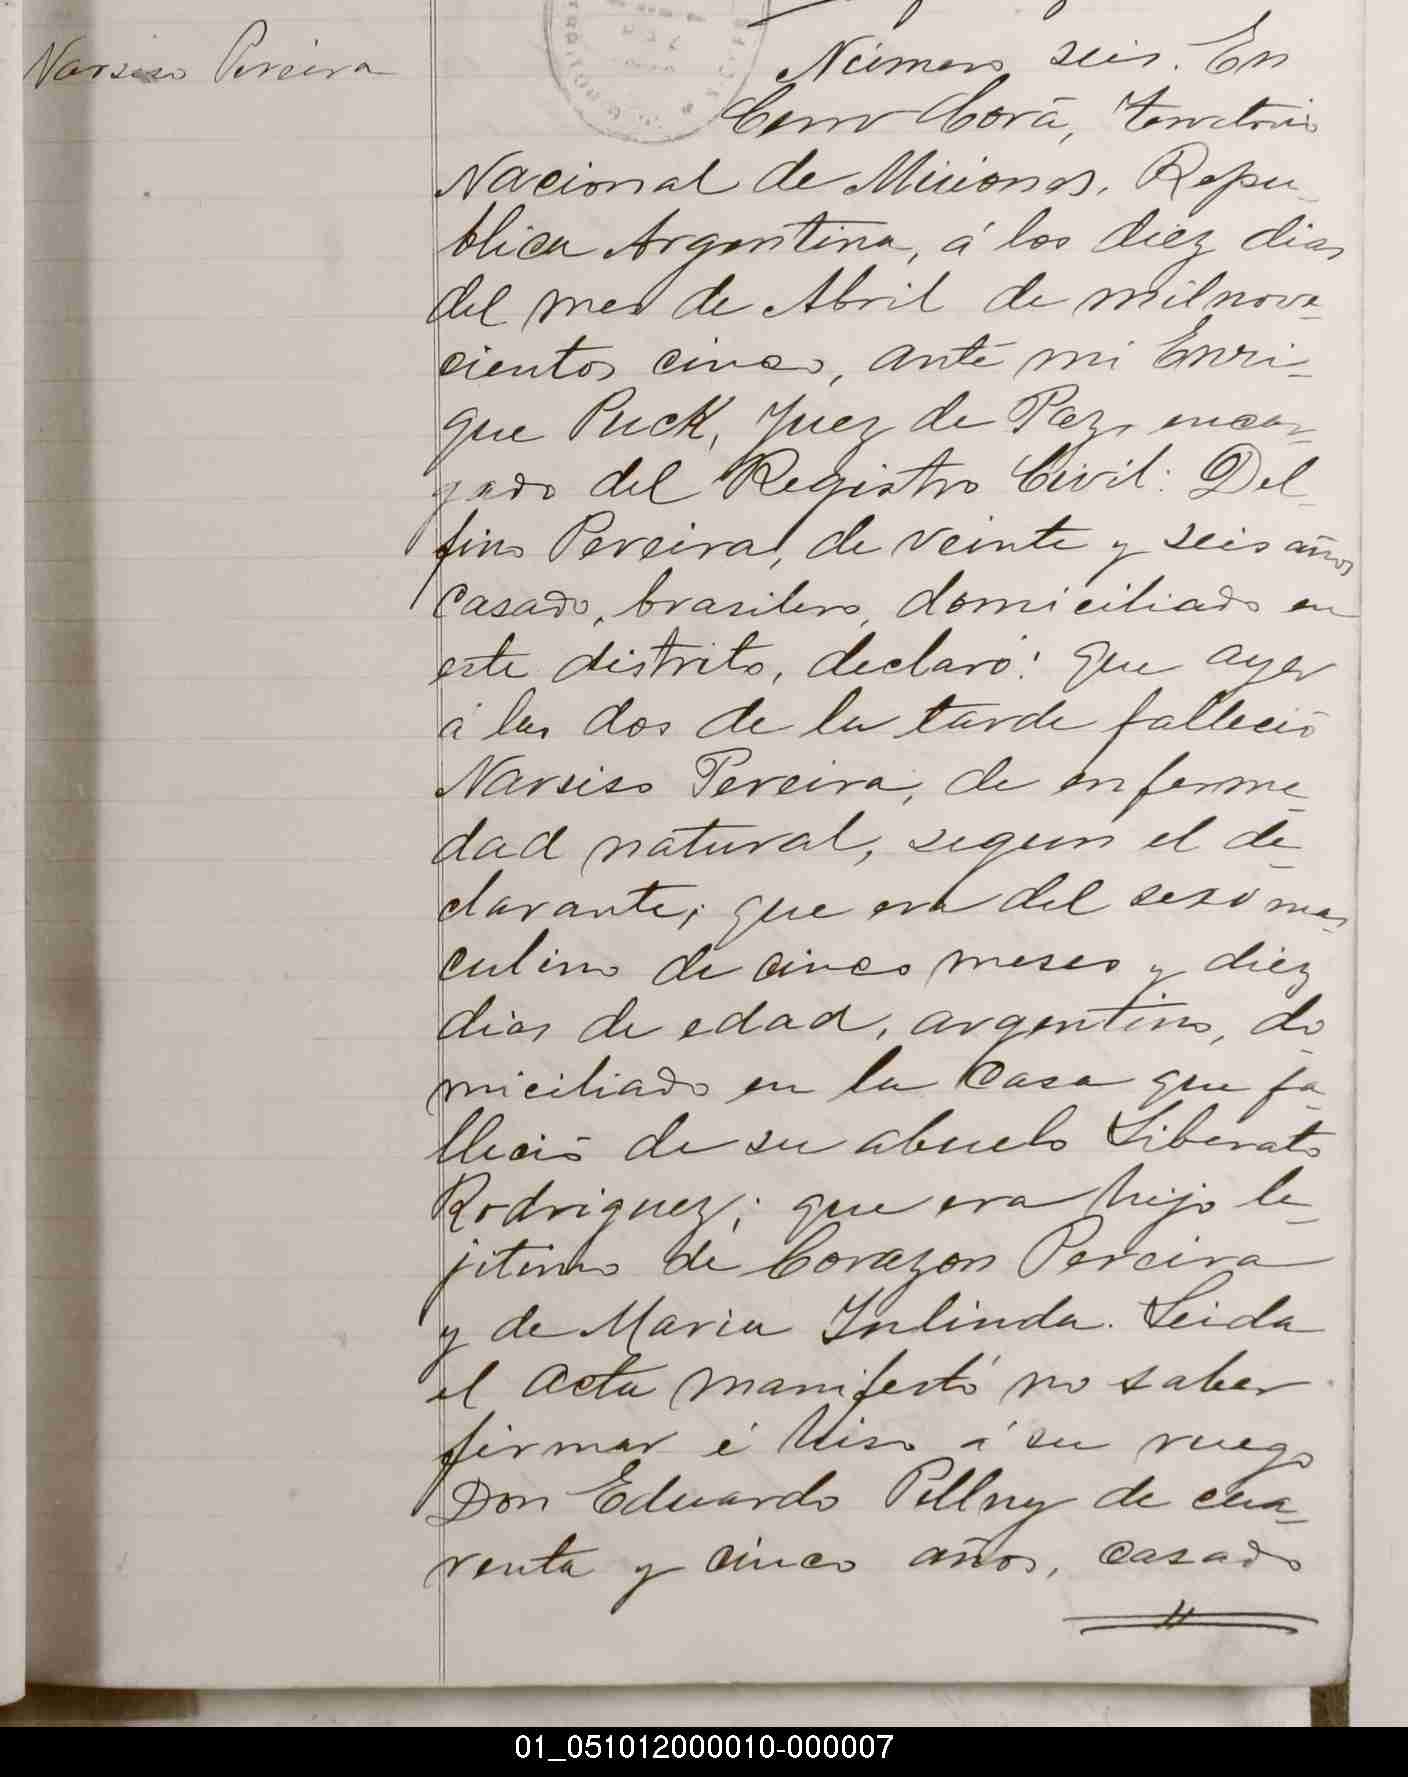 Narsiso Pereira
Número seis. En
Cerro Corá, Territorio
Nacional de Misiones, Repu-
blica Argentina, á los diez dias
del mes de Abril de milnove-
cientos cinco, ante mi Enri-
que Puck, Juez de Paz, encar-
gado del Registro Civil: Del-
fino Pereira, de veinte y seis años
casado, brasilero, domiciliado en
este distrito, declaró: que ayer
á las dos de la tarde falleció
Narsiso Pereira, de enferme-
dad natural, segun el de-
clarante; que era del sexo mas-
culino de cinco meses y diez
dias de edad, argentino, do-
miciliado en la casa que fa-
lleció de su abuelo Liberato
Rodriguez; que era hijo le-
jitimo de Corazon Pereira
y de Maria Inlinda. Leida
el acta manifestó no saber
firmar é hiso á su ruego
Don Eduardo Pillny de cua-
renta y cinco años, casado
01_051012000010-000007